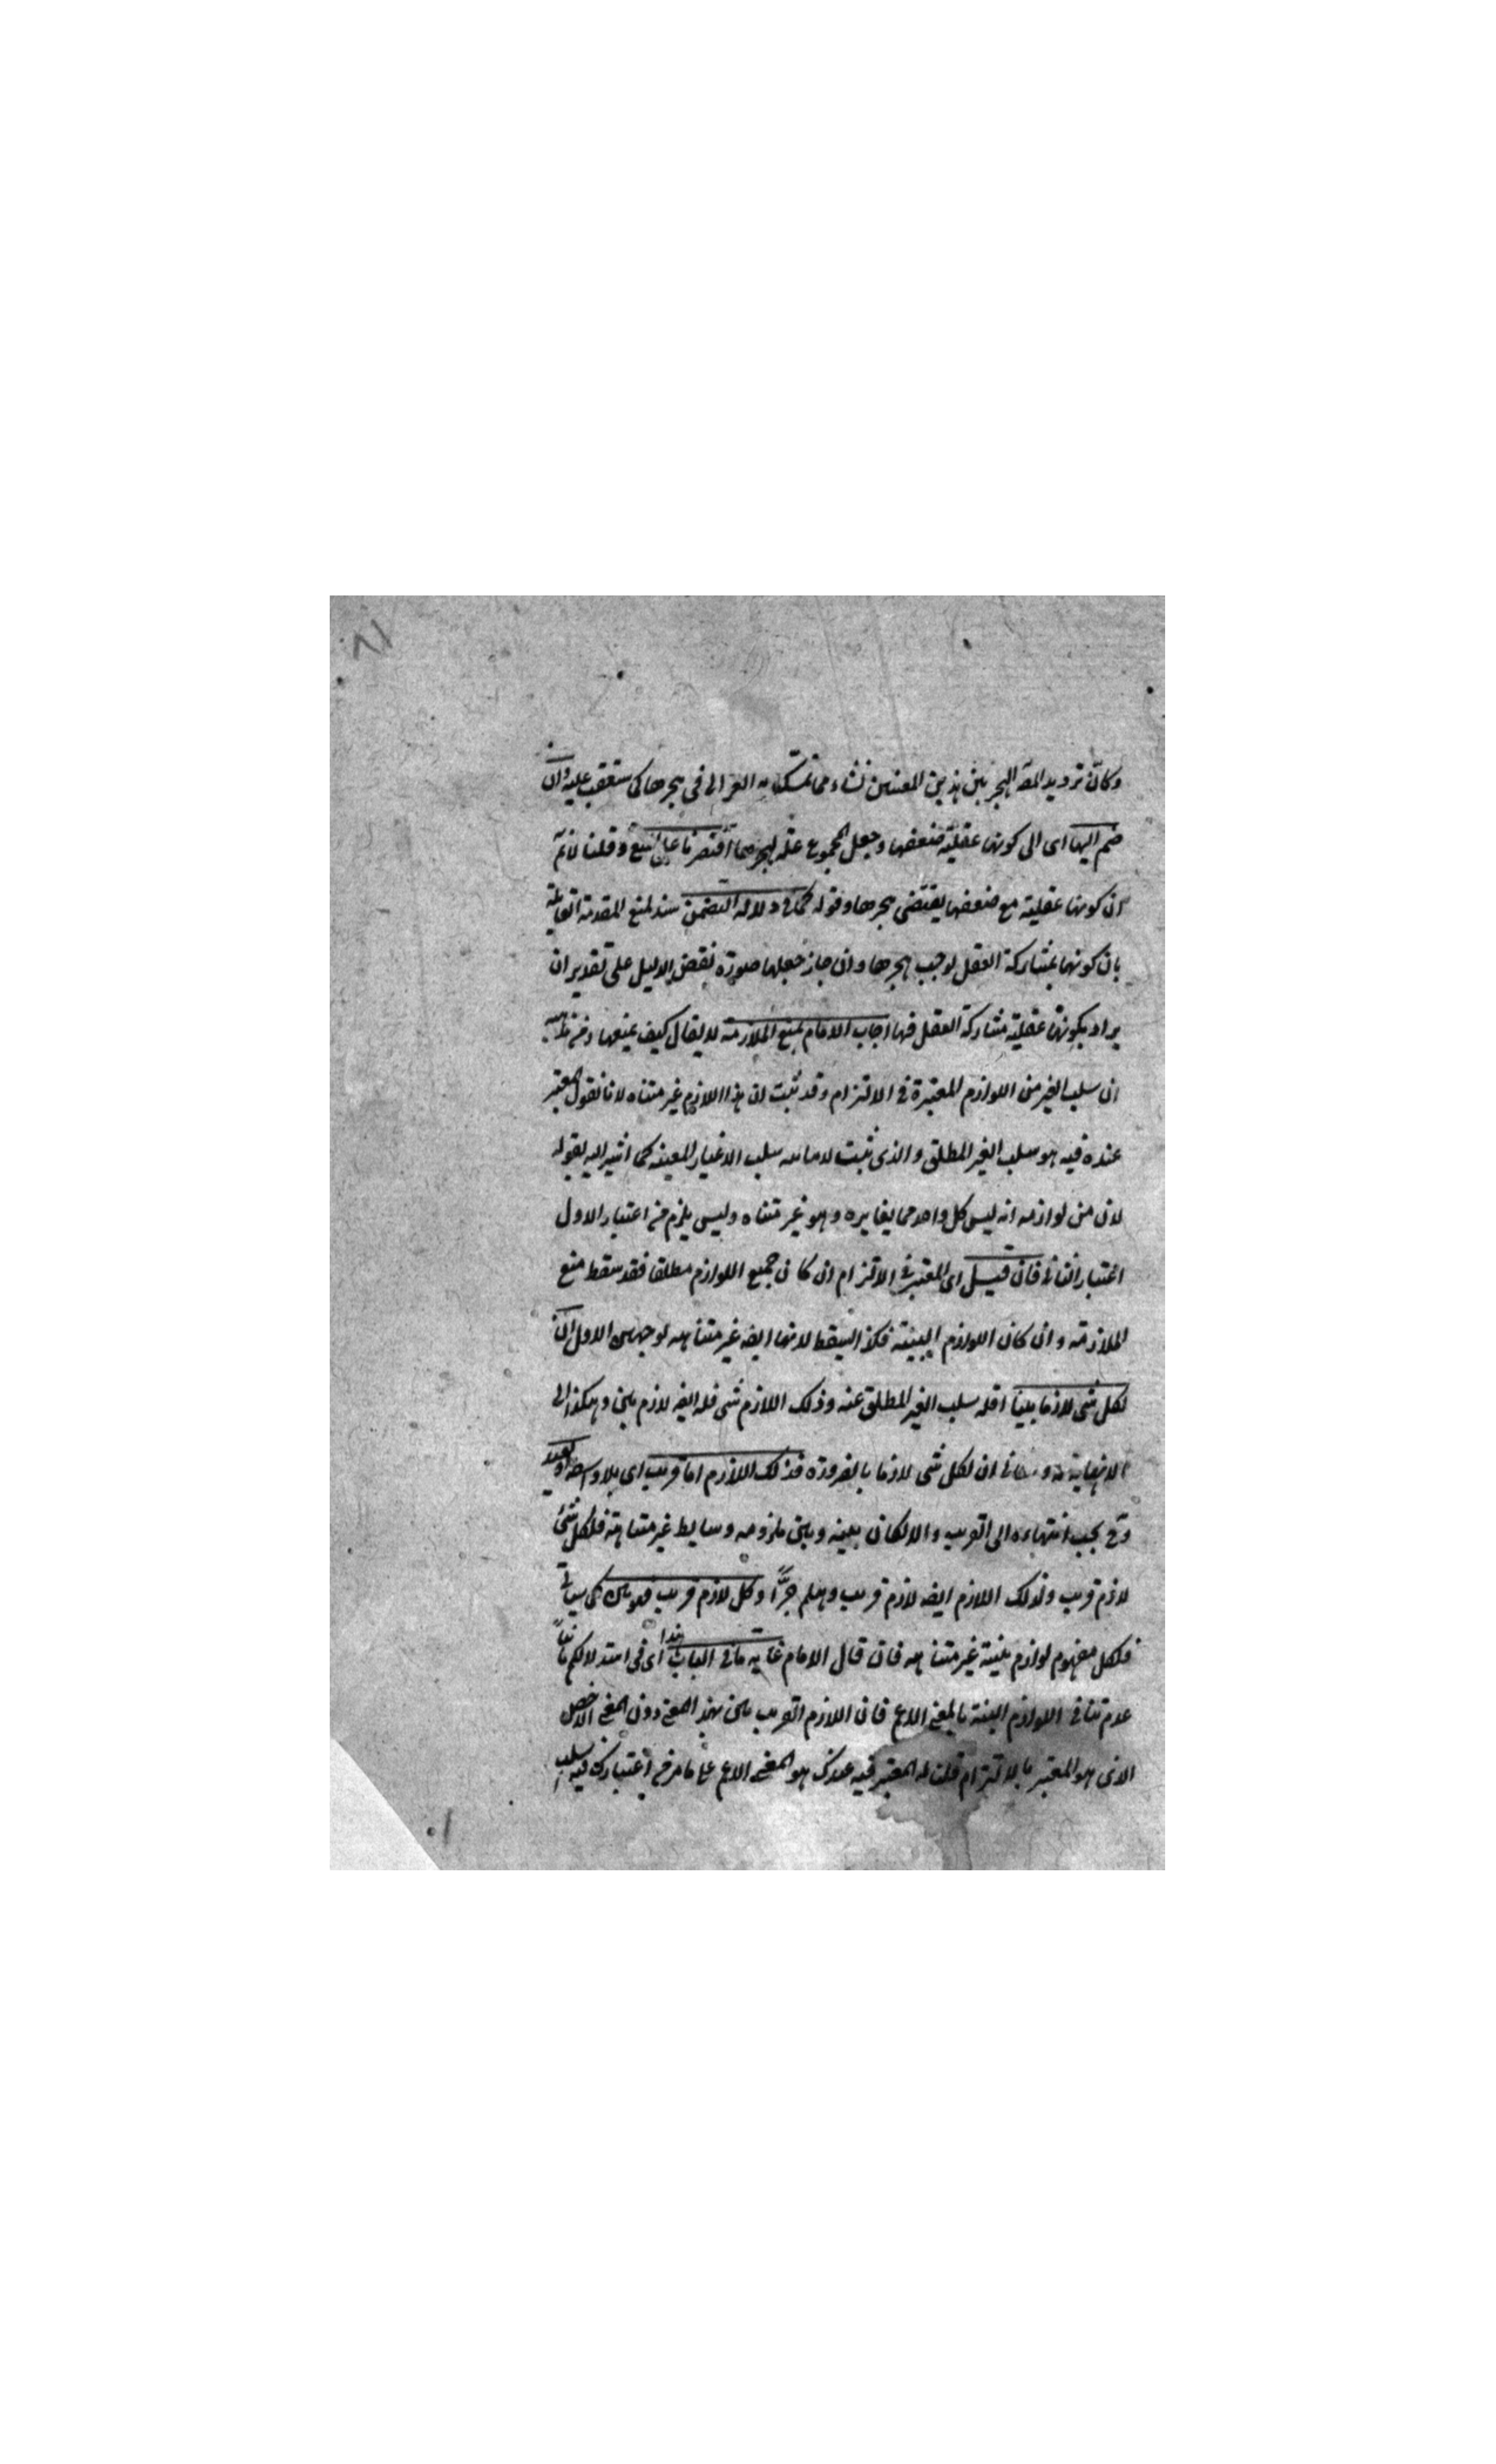 ٨١
وكانّ ترديد المص الهجر بين هذين المعنيين نشاء مما تمسك به الغزالى فى هجرها كى ستقف عليه وان
ضم اليها اى الى كونها عقلية ضعفها وجعل المجموع علة لهجرها اقتصرنا على المنع وقلنا لا نم
ان كونها عقلية مع ضعفها يقتضى هجرها وقوله كما فى دلالة التضمن سند لمنع المقدمة القايلة
بان كونها بمشاركة العقل يوجب هجرها وان جاز جعلها صورة نقض الدليل على تقدير ان
يراد بكونها عقلية مشاركة العقل فيها اجاب الامام بمنع الملازمة لا يقال كيف يمنعها ومن مذهبه
ان سلب الغير من اللوازم المعتبرة فى الالتزام وقد ثبت ان هذا اللازم غير متناه لانا نقول المعتبر
عنده فيه هو سلب الغير المطلق والذى ثبت لا تناهيه سلب الاغيار المعينه كما اشير اليه بقوله
لان من لوازمه انه ليس كل واحد مما يغايره وهو غير متناه وليس يلزم من اعتبار الاول
اعتبار الثانى فان قيل اى المعتبر فى الالتزام ان كان جميع اللوازم مطلقا فقد سقط منع
الملازمة وان كان اللوازم البينة فكذا يسقط لانها ايضه غير متناهيه لوجهين الاول ان
لكل شى لازما بينا اقله سلب الغير المطلق عنه وذلك اللازم شى فله ايضه لازم بين وهكذا الى
لا نهاية له والثانى ان لكل شى لازما بالضرورة فذلك اللازم اما قريب اى بلا واسطة او بعيد
وح يجب انتهاءه الى القريب والا لكان بينه وبين ملزومه وسايط غير متناهية فلكل شئ
لازم قريب ولذلك اللازم ايضه لازم قريب وهلم جرًّا وكل لازم قريب فهو بين كى سياتى
فلكل مفهوم لوازم بينة غير متناهيه فان قال الامام غاية ما فى الباب هذا اى فى استدلالكم ثانيًا
عدم تناهى اللوازم البينة بالمعنى الاعم فان اللازم القريب بين بهذا المعنى دون المعنى الاخص
الذى هو المعتبر بالالتزام قلنا له المعتبر فيه عندك هو المعنى الاعم على ما مر فى اعتبارك فيه سلب